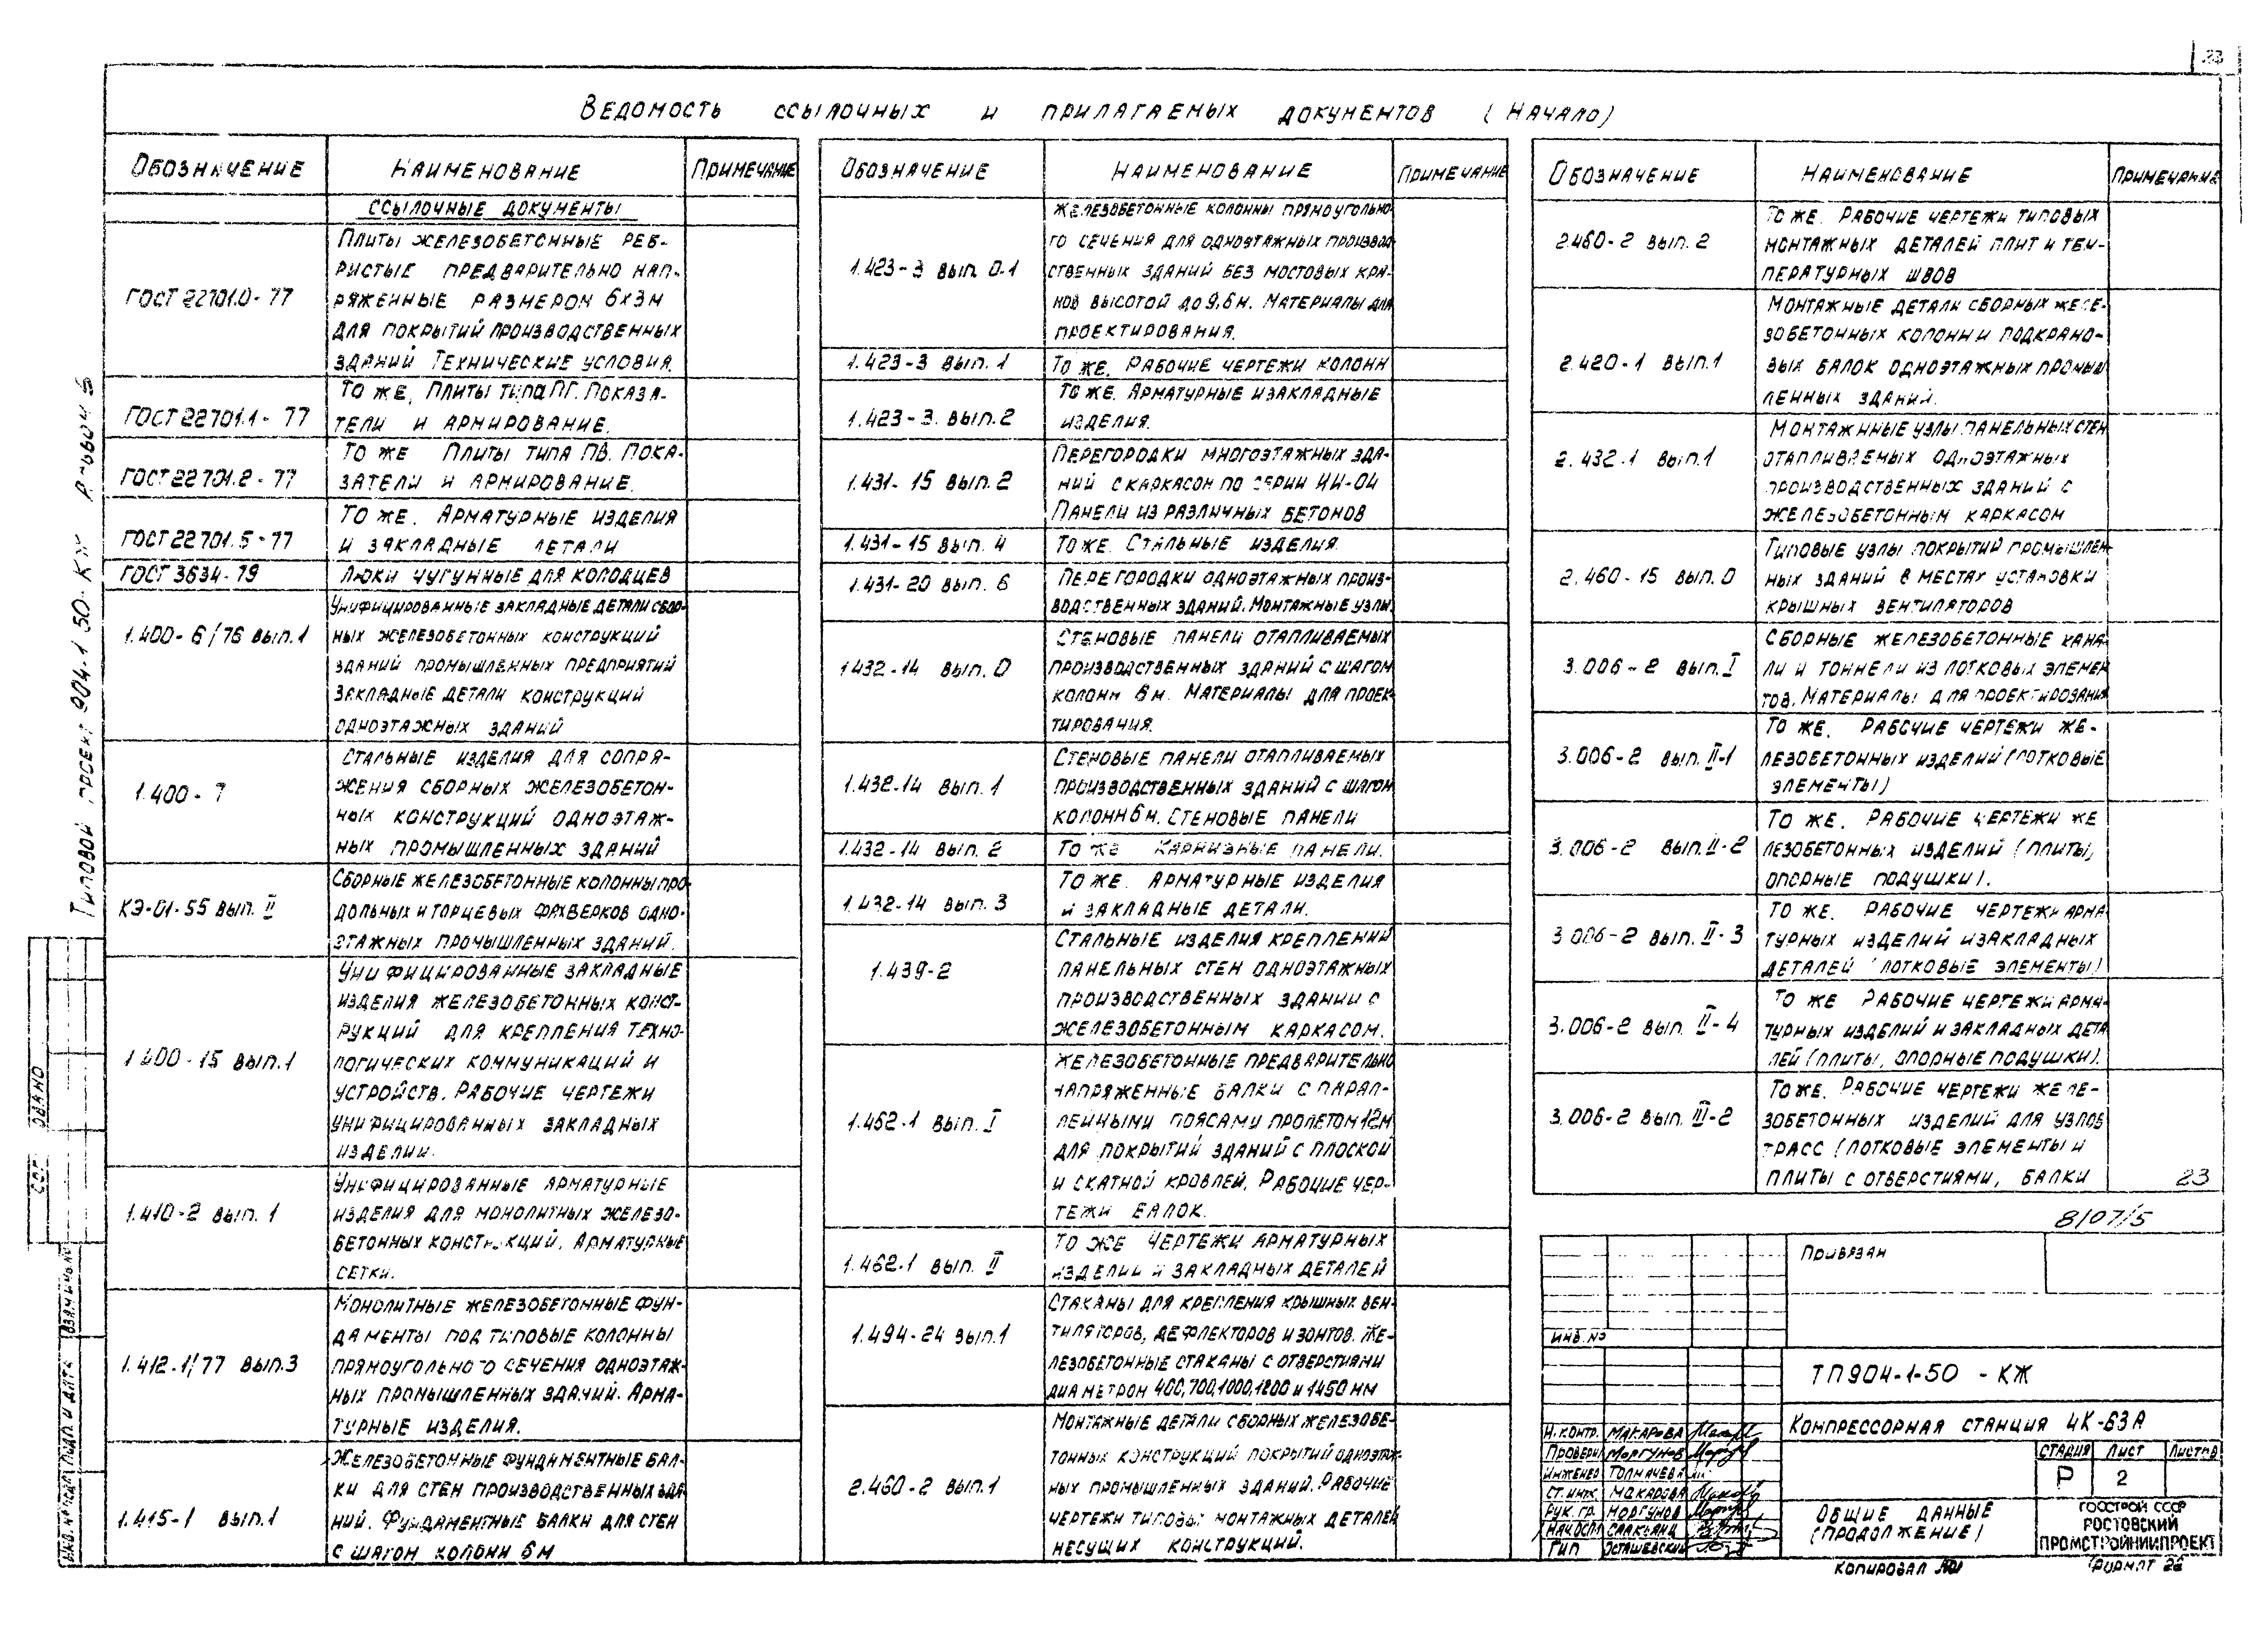 23
Ведомость ссылочных и прилагаемых документов (начало)
Обозначение Наименование Примечание
Ссылочные документы
ГОСТ 22701.0-77
Плиты железобетонные реб-
ристые предварительно нап-
ряженные размером 6х3м
для покрытий производственных
зданий Технические условия.
ГОСТ 22701.1-77
То же, Плиты типа ПГ. Показа-
тели и армирование.
ГОСТ 22701.2-77
То же Плиты типа ПВ. Пока-
затели и армирование.
ГОСТ 22701.5-77
То же. Арматурные изделия
и закладные детали
ГОСТ 3634-79
Люки чугунные для колодцев
1.400-6/76 вып.1
Унифицированные закладные детали сбор-
ных железобетонных конструкций
зданий промышленных предприятий
Закладные детали конструкций
одноэтажных зданий
1.400-7
Стальные изделия для сопря-
жения сборных железобетон-
ных конструкций одноэтаж-
ных промышленных зданий
КЭ-01-55 вып. II
Сборные железобетонные колонны про-
дольных и торцевых фахверков одно-
этажных промышленных зданий.
1.400-15 вып.1
Унифицированные закладные
изделия железобетонных конст-
рукций для крепления техно-
логических коммуникаций и
устройств. Рабочие чертежи
унифицированных закладных
изделий.
1.410-2 вып. 1
Унифицированные арматурные
изделия для монолитных железо-
бетонных конструкций. Арматурные
сетки.
1.412-1/77 вып.3
Монолитные железобетонные фун-
даменты под типовые колонны
прямоугольного сечения одноэтаж-
ных промышленных зданий. Арма-
турные изделия.
1.415-1 вып.1
Железобетонные фундаментные бал-
ки для стен производственных зда-
ний. Фундаментные балки для стен
с шагом колонн 6м
Обозначение Наименование Примечание
1.423-3 вып. 0-1
Железобетонные колонны прямоугольно-
го сечения для одноэтажных производ-
ственных зданий без мостовых кра-
нов высотой до 9,6м. Материалы для
проектирования.
1.423-3 вып.1
То же. Рабочие чертежи колонн
1.423-3. вып.2
То же. Арматурные и закладные
изделия.
1.431-15 вып.2
Перегородки многоэтажных зда-
ний с каркасом по серии ИИ-04
Панели из различных бетонов
1.431-15 вып. 4
То же. Стальные изделия.
1.431-20 вып. 6
Перегородки одноэтажных произ-
водственных зданий. Монтажные узлы.
1432-14 вып. 0
Стеновые панели отапливаемых
производственных зданий с шагом
колонн 6м. Материалы для проек-
тирования.
1.432-14 вып. 1
Стеновые панели отапливаемых
производственных зданий с шагом
колонн 6м. Стеновые панели
1.432-14 вып. 2
То же Карнизные панели.
1.432-14 вып. 3
То же. Арматурные изделия
и закладные детали.
1.439-2
Стальные изделия креплений
панельных стен одноэтажных
производственных зданий с
железобетонным каркасом.
1.462-1 вып. I
Железобетонные предварительно
напряженные балки с парал-
лельными поясами пролетом 12м
для покрытий зданий с плоской
и скатной кровлей. Рабочие чер-
тежи балок.
1.462-1 вып. II
То же чертежи арматурных
изделий и закладных деталей
1.494-24 вып.1
Стаканы для крепления крышных вен-
тиляторов, дефлекторов и зонтов. Же-
лезобетонные стаканы с отверстиями
диаметром 400,700,1000,1200 и 1450 мм
2.460-2 вып.1
Монтажные детали сборных железобе-
тонных конструкций покрытий одноэтаж-
ных промышленных зданий. Рабочие
чертежи типовых монтажных деталей
несущих конструкций.
Обозначение Наименование Примечание
2.460-2 вып.2
То же. Рабочие чертежи типовых
монтажных деталей плит и тем-
пературных швов
2.420-1 вып.1
Монтажные детали сборных желе-
зобетонных колонн и подкрано-
вых балок одноэтажных промыш
ленных зданий.
2.432.1 вып.1
Монтажнные узлы панельных стен
отапливаемых одноэтажных
производственных зданий с
железобетонным каркасом
2.460-15 вып.0
Типовые узлы покрытий промышлен
ных зданий в местах установки
крышных вентиляторов
3.006-2 вып. I
Сборные железобетонные кана-
ли и тоннели из лотковых элемен
тов. Материалы для проектирования
3.006-2 вып. II-1
То же. Рабочие чертежи же-
лезобетонных изделий (лотковые
элементы)
3.006-2 вып. II-2
То же. Рабочие чертежи же
лезобетонных изделий (плиты,
опорные подушки).
3.006-2 вып. II-3
То же. Рабочие чертежи арма
турных изделий и закладных
деталей (лотковые элементы)
3.006-2 вып. II-4
То же Рабочие чертежи арма-
турных изделий и закладных дета
лей (плиты, опорные подушки).
3.006-2 вып. III-2
То же. Рабочие чертежи желе-
зобетонных изделий для узлов
трасс (лотковые элементы и
плиты с отверстиями, балки
23
8107/5
Привязан
Инв. №
ТП904-1-50 - КЖ
Компрессорная станция 4К-63А
Н. контр. Макарова
Провери Моргунов
Инженер Толмачева
Ст. инж. Макарова
Рук. гр. Моргунов
Нач.осп Саакьянц
Гип Осташевский
Стадия Лист Листов
Р 2
Общие данные
(продолжение)
Госстрой СССР
Ростовский
Промстройниипроект
Копировал
Формат 22
Типовой проект 904-1 50-КЖ Альбом 5
Инв. № подл. Подп. и дата Взам.инв.№